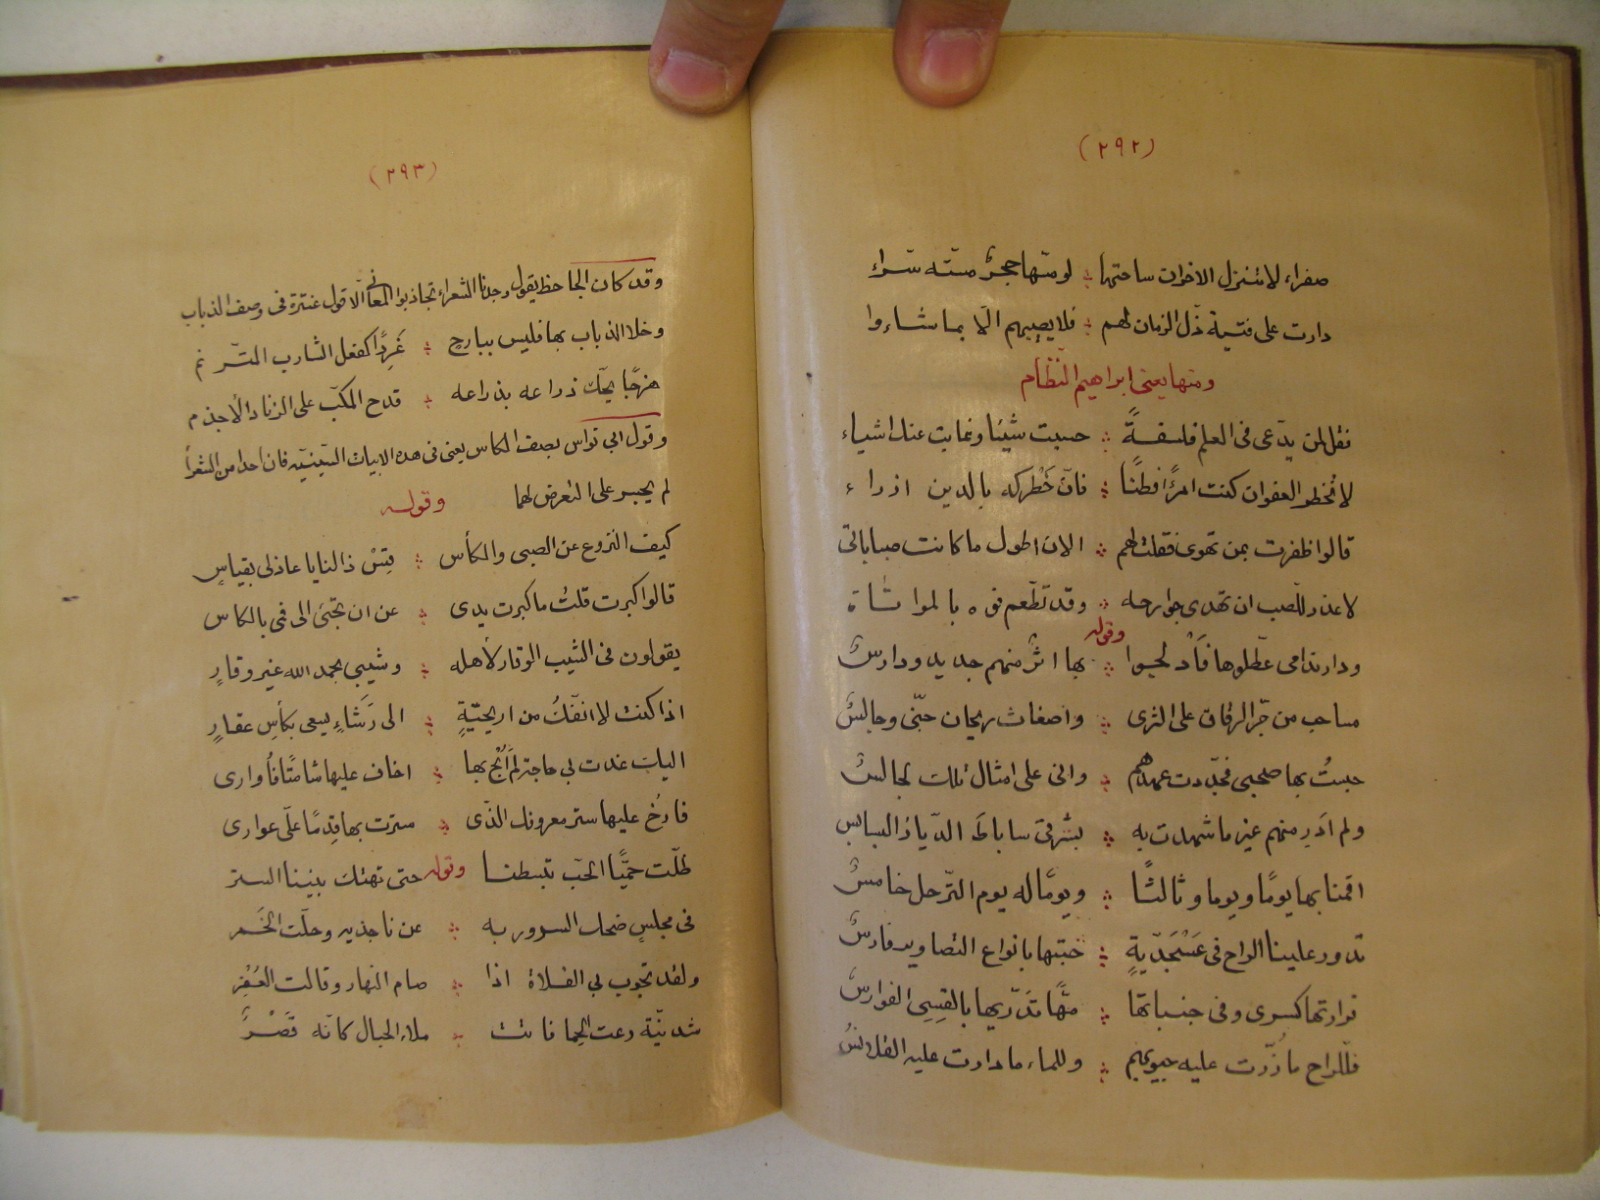 (٢٩٢)
صفراء لا تنزل الاحزان ساحتها ؞ لو مسّها حجرٌ مسّته سرّاء
دارت على فتية ذلّ الزمان لهم ؞ فلا يصيبهم الّا بما شاءوا
ومنها يعنى ابراهيم النّظّام
فقل لمن يدّعى فى العلم فلسفةً ؞ حسبت شيئا وغابت عنك اشياء
لا تخطر العفو ان كنت امرًا فطنًا ؞ فانّ خَطْركه بالدين ازراء
قالوا ظفرت بمن تهوى فقلت لهم ؞ الان اطول ما كانت صباباتى
لا عذر للصّب ان تهدى جوارحه ؞ وقد تطّعم فوه بالمواتاة
وقوله
ودار ندامى عطّلوها فَأَدْلجوا ؞ بها اثرٌ منهم جديد ودارسُ
مساحب من جرّ الزقاق على الثرى ؞ واضغاث ريحان جنّى وحابسُ
حبستُ بها صحبى فجدّدت عهدهم ؞ وانى على امثال تلك لحابسُ
ولم اَدرِ منهم غير ما شهدت به ؞ بشرقى ساباطَ الديار البسابس
اقمنا بها يومًا ويوما وثالثًا ؞ ويومًا له يوم التّرحل خامسُ
تدور علينا الراح فى عَسْجَديّةٍ ؞ حبتها بانواع التصاوير فارسُ
قرارتها كسرى وفى جنباتها ؞ مهًا تدّريها بالقسِى الفوارسُ
فللراح ما زُرّت عليه جيوبهم ؞ وللماء ما دارت عليه القلانسُ
(٢٩٣)
وقد كان الجاحظ يقول وجدنا الشعراء تجاذبوا المعانى الّا قول عنترة فى وصف الذباب
وخلا الذباب بها فليس ببارح ؞ غَرِدًا كفعل الشارب المترّنم
هزجًا يحكّ ذراعه بذراعه ؞ قدح المكبّ على الزناد الأجذم
وقول ابى نواس بصف الكاس يعنى فى هده الابيات السّينيّه فان احدا من الشعرآ
لم يجسر على التعرض لهما وقوله
كيف النزوع عن الصبى والكأس ؞ قِسْ ذا لنا يا عاذلى بقياسٍ
قالوا كبرت قلتُ ما كبرت يدى ؞ عن ان تجئ الى فمى بالكاس
يقولون فى الشيب الوقار لأهله ؞ وشيبى بحمد الله غير وقارٍ
اذا كنت لا انفكّ من اريحيّةٍ ؞ الى رَشَاءٍ يسعى بكأسِ عقارٍ
اليك غدت بى حاجة لم اَبُح بها ؞ اخاف عليها شامتًا فأوارى
فارْخ عليها ستر معروفك الذّى ؞ سترت بها قِدمًا علّى عوارى
وقوله
ظلّت حميّا الكاس تبسطنا ؞ حتى تهتك بيننا الستر
فى مجلسٍ ضحك السرور به ؞ عن ناجذيه وحلّت الخَمر
ولقد تجوب بى الفلاة اذا ؞ صام النهار وقالت العُفْر
شدنيّة رعت الحِما فاتت ؞ ملاء الحبال كانّه قَصْرُ